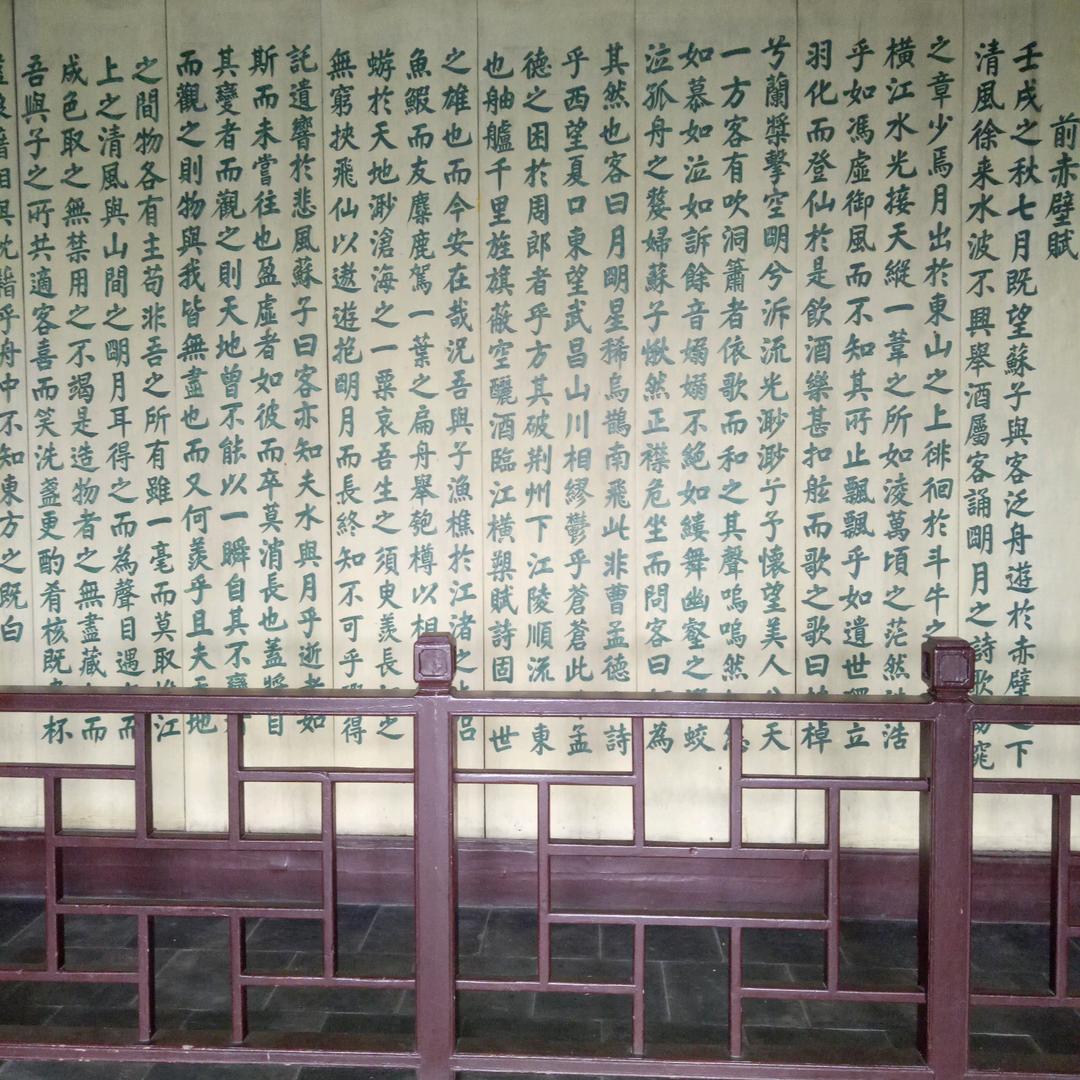 前赤壁賦
壬戌之秋七月既望蘇子與客泛舟遊於赤壁之下
清風徐来水波不興舉酒屬客誦朙月之詩歌窈窕
之章少焉月出於東山之上徘徊於斗牛之
橫江水光接天縱一葦之所如淩萬頃之茫然浩
乎如馮虛御風而不知其所止飄飄乎如遺世獨立
羽化而登仙於是飲酒樂甚扣舷而歌之歌曰桂棹
兮蘭槳擊空朙兮泝流光渺渺兮予懷望美人兮天
一方客有吹洞簫者依歌而和之其聲嗚嗚然
如慕如泣如訴餘音嫋嫋不絕如縷舞幽壑之潛蛟
泣孤舟之嫠婦蘇子愀然正襟危坐而問客曰何為
其然也客曰月朙星稀烏鵲南飛此非曹孟德詩
乎西望夏口東望武昌山川相繆鬱乎蒼蒼此孟
德之困於周郎者乎方其破荆州下江陵順流東
也舳艫千里旌旗蔽空釃酒臨江橫槊賦詩固世
之雄也而今安在哉況吾與子漁樵於江渚之上侶
魚鰕而友麋鹿駕一葉之扁舟舉匏樽以相
蜉於天地渺滄海之一粟哀吾生之須臾羨長江之
無窮挾飛仙以遨遊抱朙月而長終知不可乎驟得
託遺響於悲風蘇子曰客亦知夫水與月乎逝者如
斯而未嘗往也盈虛者如彼而卒莫消長也蓋將自
其變者而觀之則天地曾不能以一瞬自其不變
而觀之則物與我皆無盡也而又何羨乎且夫天地
之間物各有主苟非吾之所有雖一毫而莫取惟江
上之清風與山間之朙月耳得之而為聲目遇而
成色取之無禁用之不竭是造物者之無盡藏而
吾與子之所共適客喜而笑洗盞更酌肴核既杯
相與枕藉乎舟中不知東方之既白